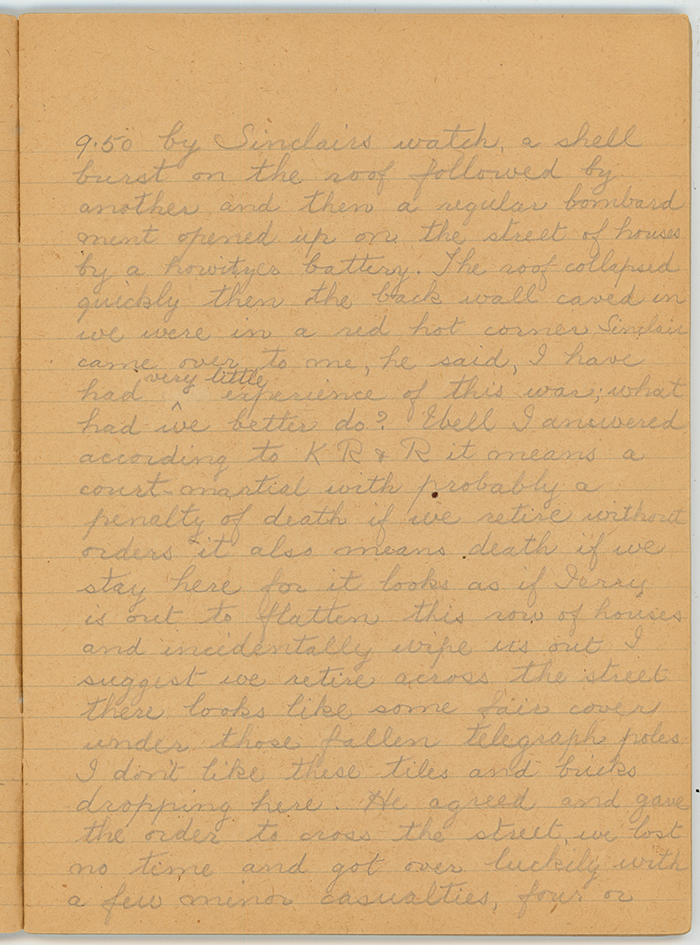 9.50 by Sinclairs watch, a shell
burst on the roof followed by
another and then a regular bombard
ment opened up on the street of houses
by a howitzer battery. The roof collapsed
quickly then the back wall caved in
we were in a red hot corner Sinclair
came over to me, he said, I have
had very little experience of this war; what
had we better do? Well I answered
according to K R & R it means a
court-martial with probably a
penalty of death if we retire without
orders it also means death if we
stay here for it looks as if Jerry
is out to flatten this row of houses
and incidentally wipe us out I
suggest we retire across the street
there looks like some fair cover
under those fallen telegraph poles
I dont like these tiles and bricks
dropping here. He agreed and gave
the order to cross the street, we lost
no time and got over luckily with
a few minor casualties, four or